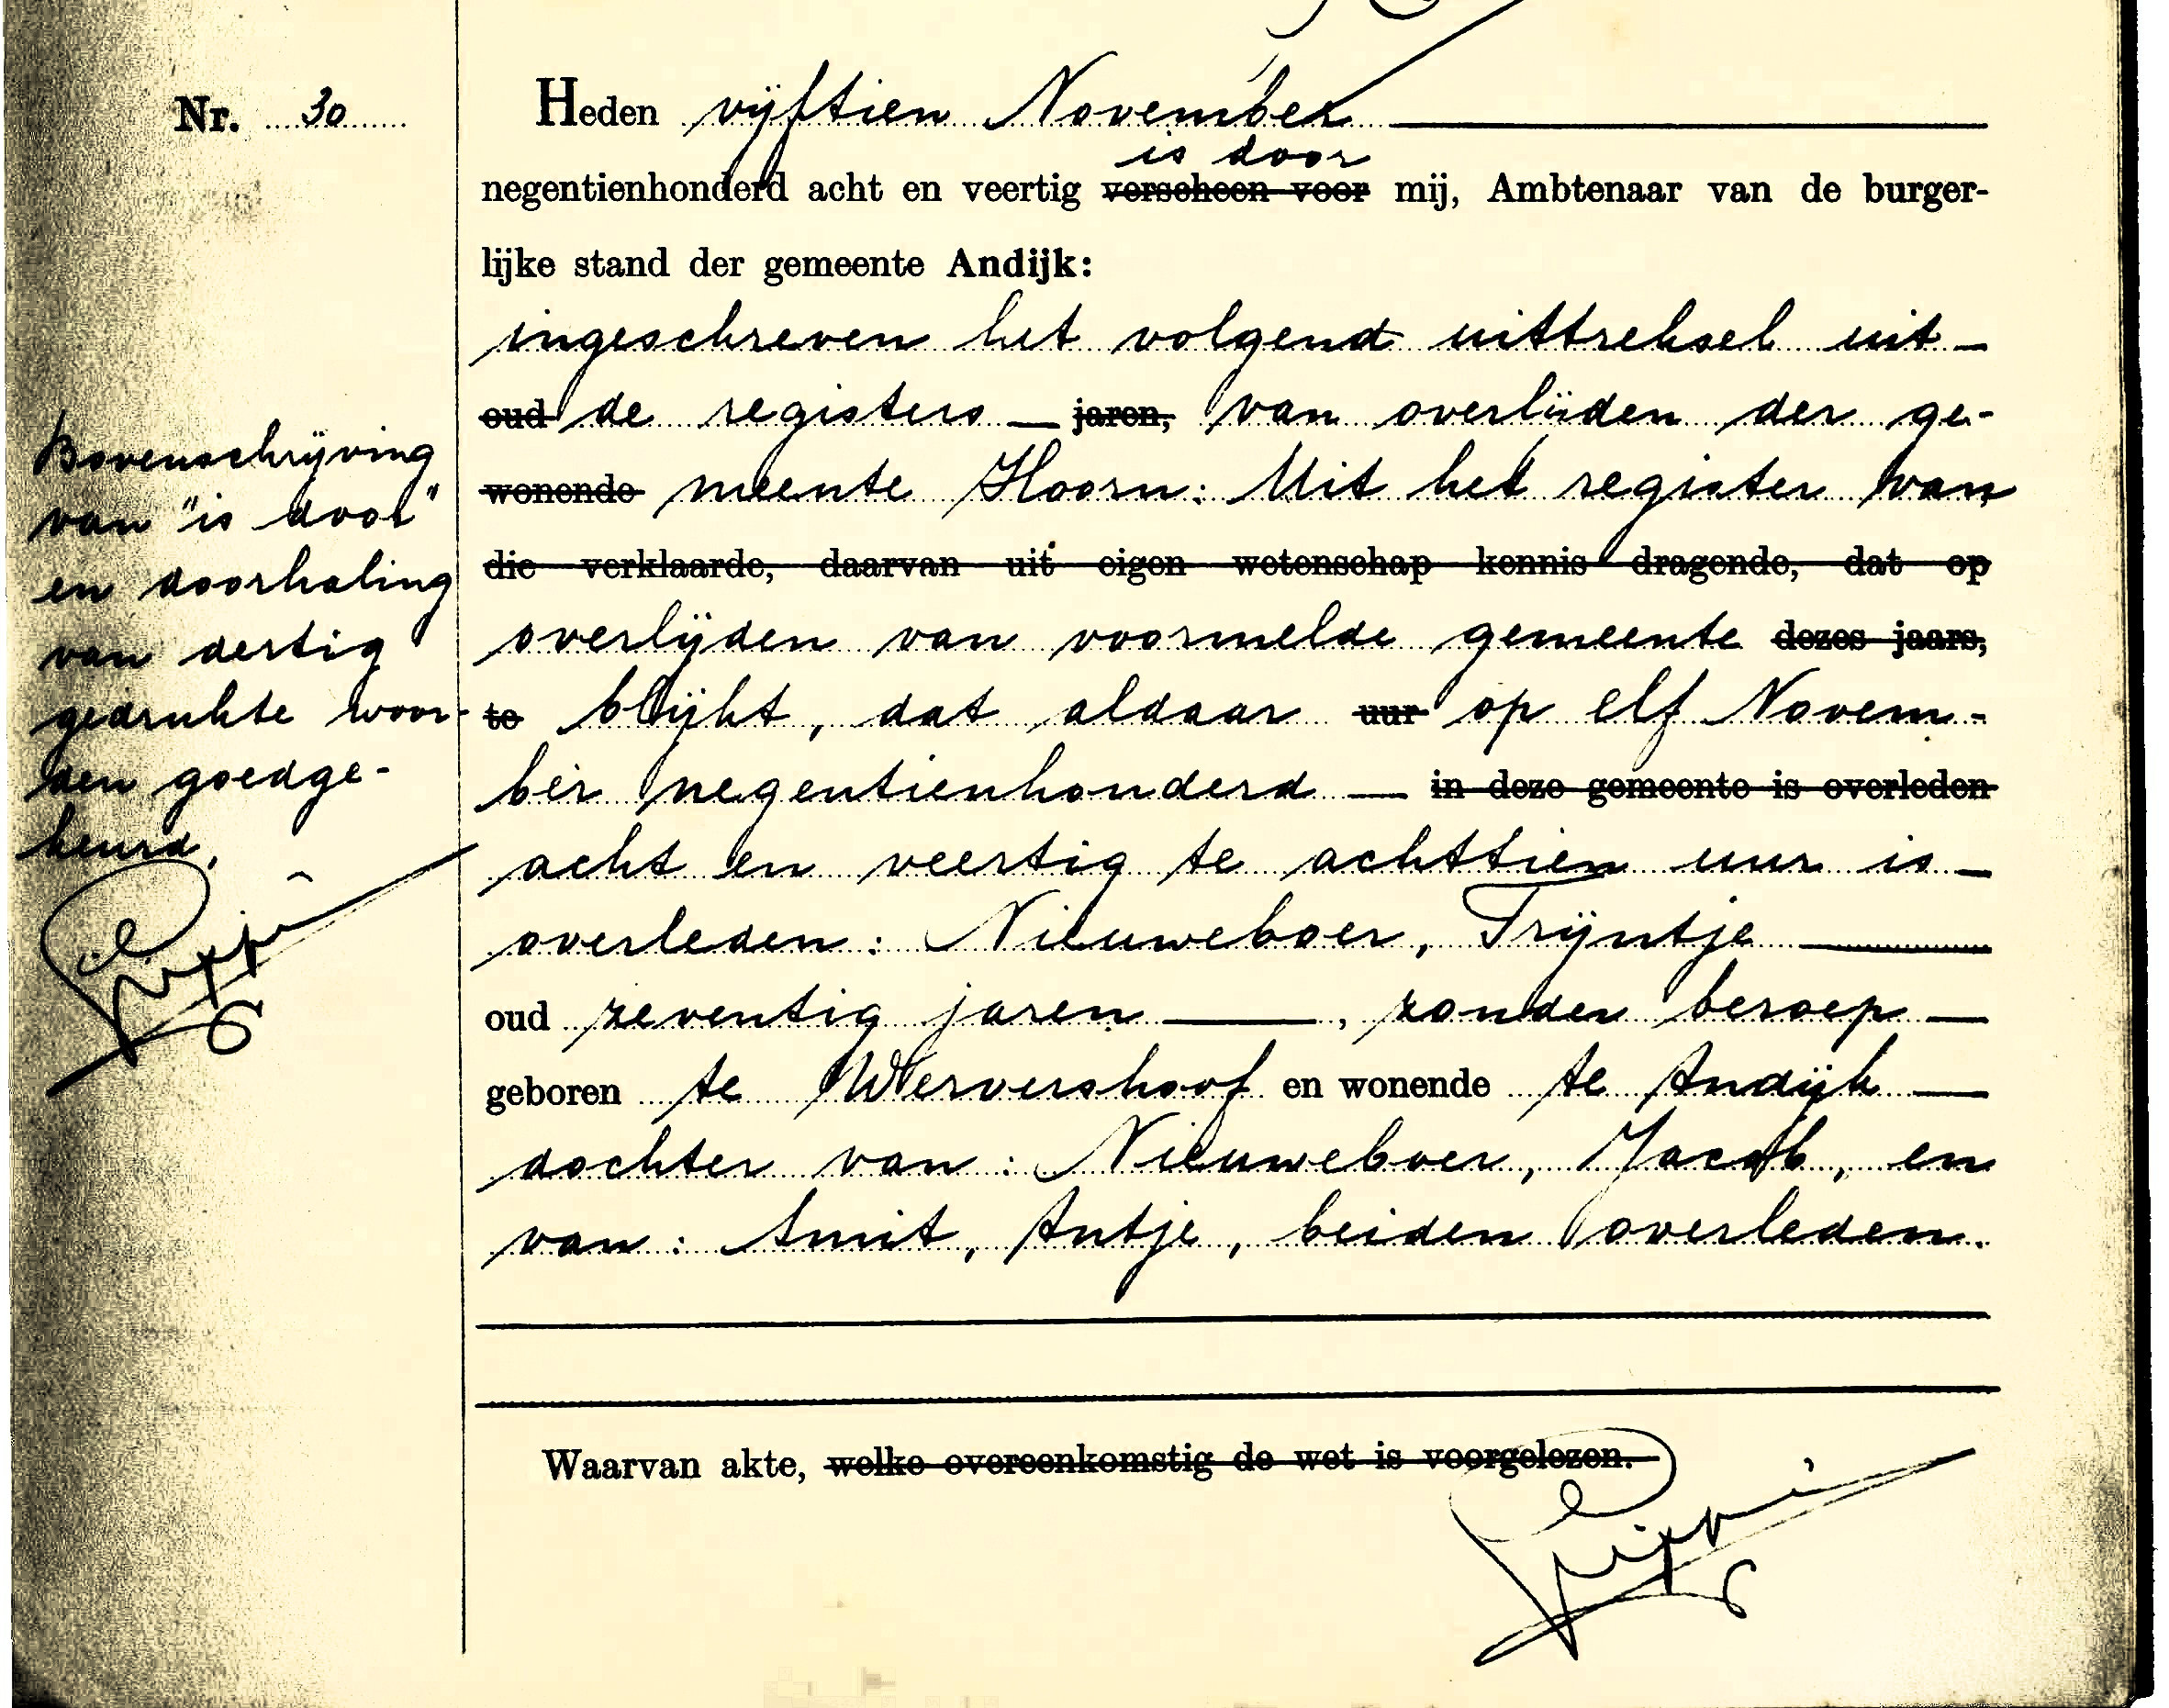 Nr. 30
Heden vijftien November
is door
negentienhonderd acht en veertig verscheen voor mij, Ambtenaar van de burger-
lijke stand der gemeente Andijk:
ingeschreven het volgend uittreksel uit
oud de registers jaren, van overlijden der ge-
wonende meente Hoorn: Uit het register van
die verklaarde, daarvan uit eigen wetenschap kennis dragende, dat op
overlijden van voormelde gemeente dezes jaars,
te blijkt, dat aldaar uur op elf Novem-
ber negentienhonderd in deze gemeente is overleden
acht en veertig te achttien uur is
overleden: Nieuweboer, Trijntje
oud zeventig jaren, zonder beroep
geboren te Wervershoof en wonende te Andijk
dochter van: Nieuweboer, Jacob, en
van: Smit, Antje, beiden overleden.
Waarvan akte, welke overeenkomstig de wet is voorgelezen.
Bovenschrijving
van "is door"
en doorhaling
van dertig
gedrukte woor-
den goedge-
keurd.